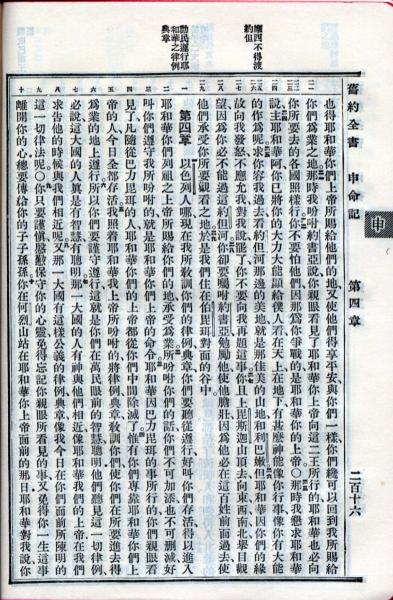 舊約全書 申命記 第四章 二百十六
申
摩西不得渡
約但
勸民遵行耶
和華之律例
典章
也得耶和華你們上帝所賜給他們的地又使他們得享平安與你們一樣你們纔可以回到我所賜給
你們爲業之地那時我吩咐約書亞說你親眼看見了耶和華你上帝向這二王所行的耶和華也必向
你所要去的各國照樣行你不要怕他們因那爲你爭戰的是耶和華你的上帝那時我懇求耶和華
說主耶和華阿你已將你的大力大能顯給僕人看在天上在地下有甚麼神能像你行事像你有大能
的作爲呢求你容我過去看約但河那邊的美地就是那佳美的山地和利巴嫩但耶和華因你們的緣
故向我發怒不應允我對我說罷了你不要向我再題這事你且上毘斯迦山頂去向東西南北舉目觀
望因爲你必不能過這約但河你卻要囑咐約書亞勉勵他使他膽壯因爲他必在這百姓前面過去使
他們承受你所要觀看之地於是我們住在伯毘珥對面的谷中
第四章 以色列人哪現在我所敎訓你們的律例典章你們要聽從遵行好叫你們存活得以進入
耶和華你們列祖之上帝所賜給你們的地承受爲業所吩咐你們的話你們不可加添也不可刪減好
叫你們遵守我所吩咐的就是耶和華你們上帝的命令耶和華因巴力毘珥的事所行的你們親眼看
見了凡隨從巴力毘珥的人耶和華你們的上帝都從你們中間除滅了惟有你們專靠耶和華你們上
帝的人今日全都存活我照着耶和華我上帝所吩咐的將律例典章敎訓你們使你們在所要進去得
爲業的地上遵行所以你們要謹守遵行這就是你們在萬民眼前的智慧聰明他們聽見這一切律例
必說這大國的人眞是有智慧有聰明那一大國的人有神與他們相近像耶和華我們的上帝在我們
求告他的時候與我們相近呢又那一大國有這樣公義的律例典章像我今日在你們面前所陳明的
這一切律法呢你只要謹愼殷勤保守你的心靈免得忘記你親眼所看見的事又免得你一生這事
離開你的心總要傳給你的子子孫孫你在何烈山站在耶和華你上帝面前的那日耶和華對我說你